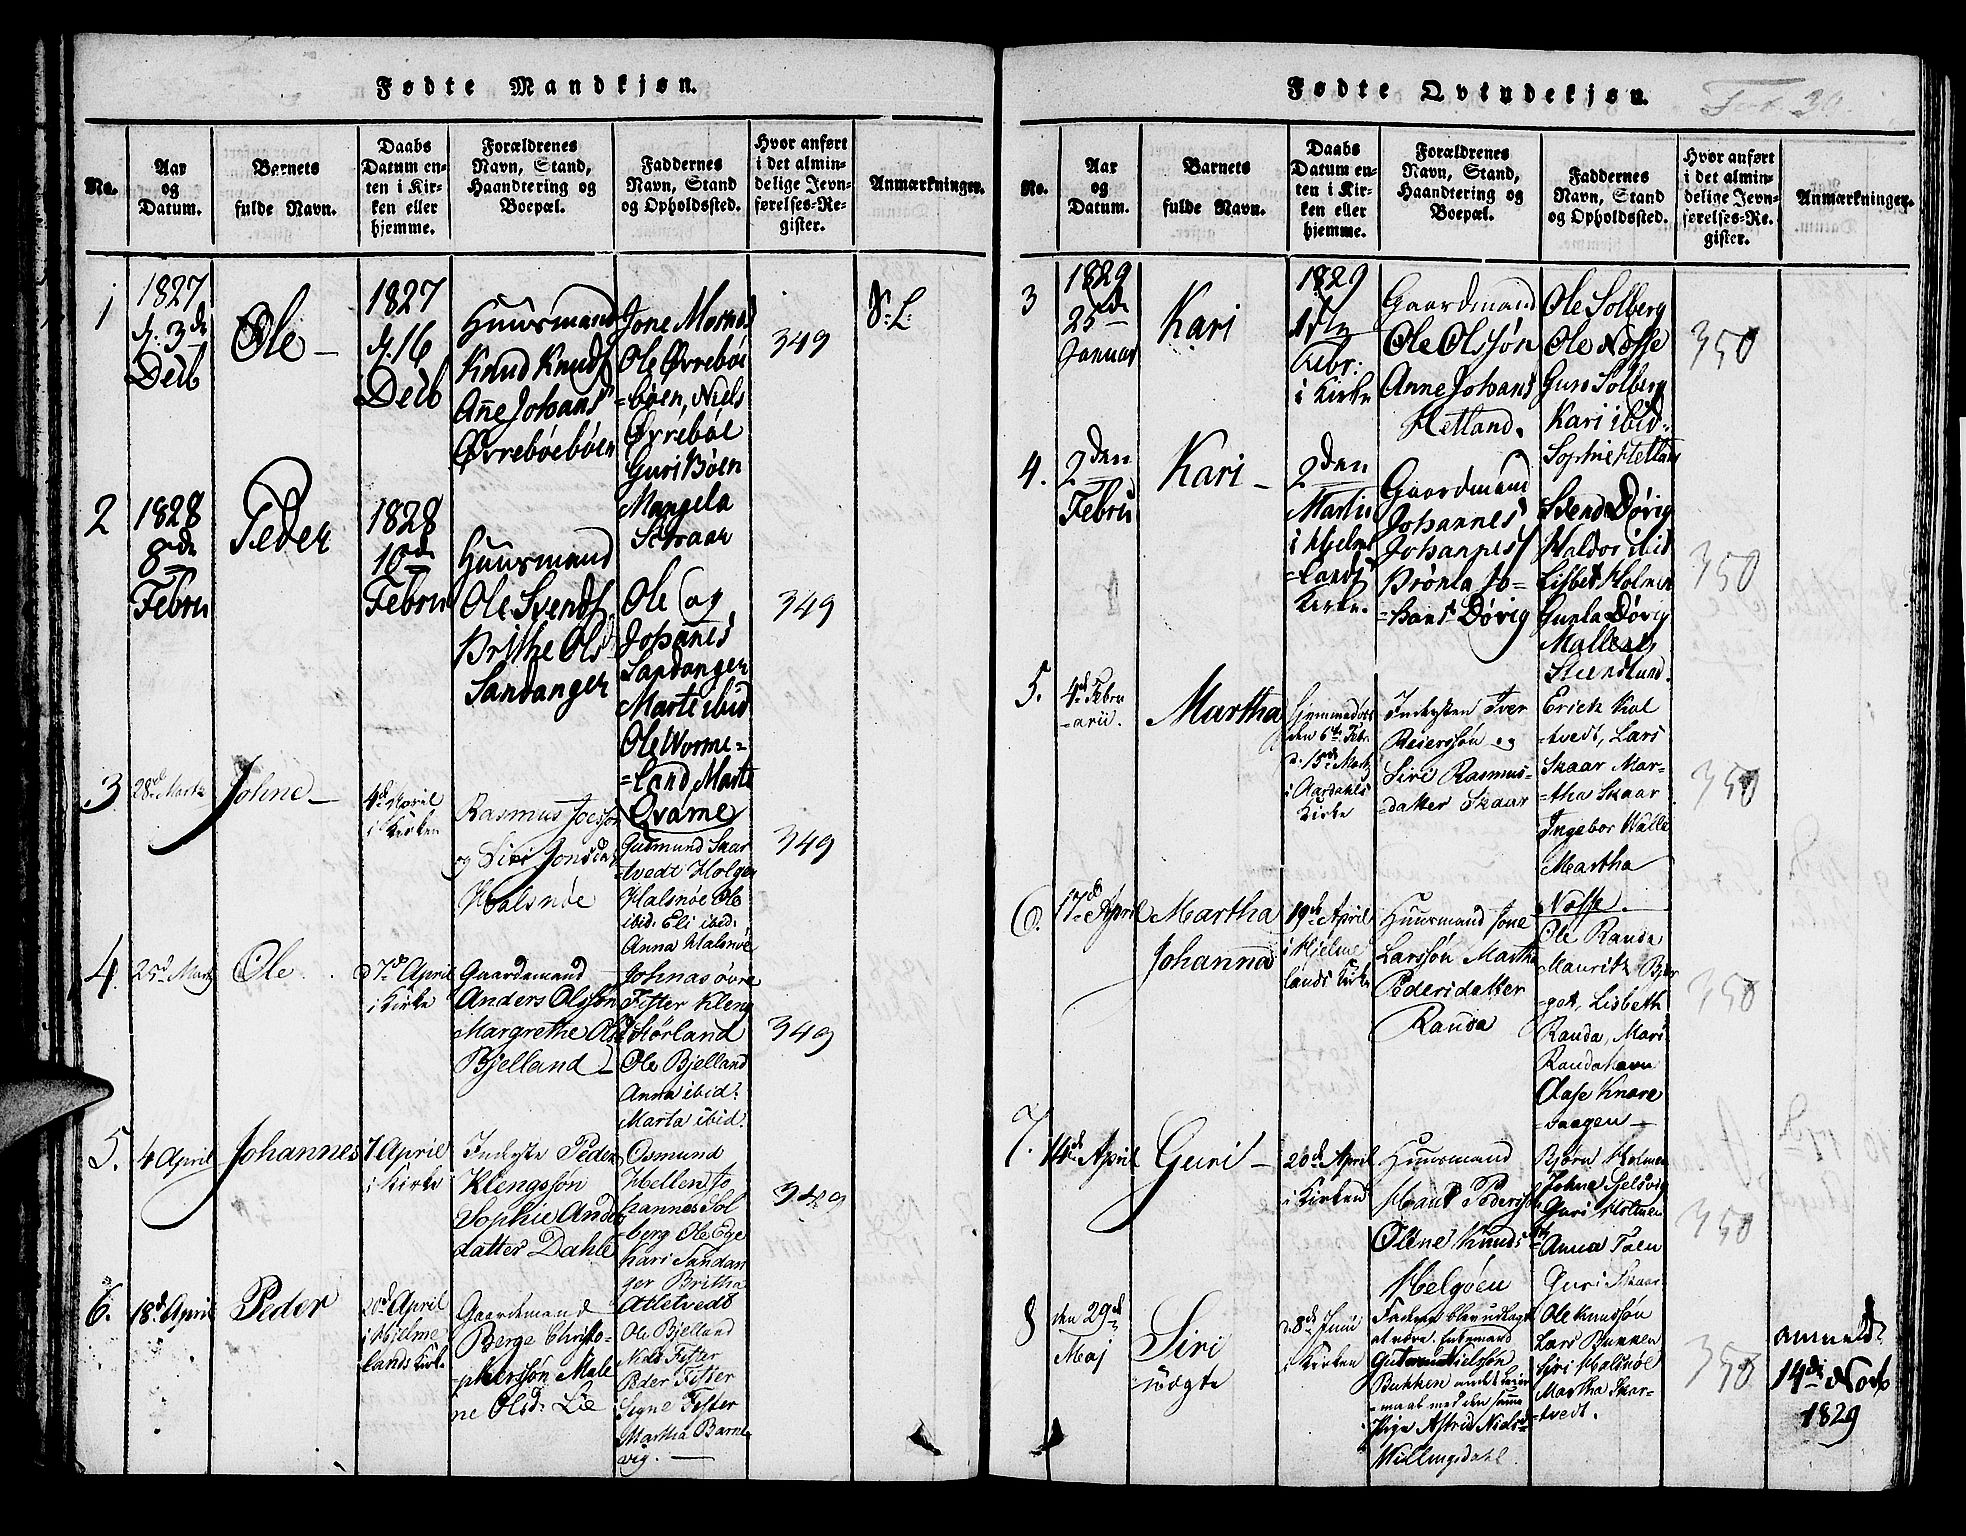 Fødte Mandkjøn.
No.
Aar
og
Datum.
Barnets
fulde Navn.
Daabs
Datum en-
ten i Kir-
ken eller
hjemme.
Forældrenes
Navn, Stand,
Haandtering og
Boepæl.
Faddernes
Navn, Stand
og Opholdssted.
Hvor anført
i det almin-
delige Jevn-
førelses-Re-
gister.
Anmærkninger.
1
1827
d. 3de
Decb
Ole
1827
d. 16
Decb
Huusmand
Knud Knuds
Anne Johans
Øvrebøebøen
Jone Mosnes
Ole Øvrebøe
=bøen, Niels
Øvrebøe
Guri Bøen
Mangela
Schaar
349
S: L:
2
1828
8de
Febru
Peder
1828
10de
Febru
Huusmand
Ole Svends
Brithe Olsd
Sandanger
Ole og
Johanes
Sandanger
Marte ibid
Ole Worme=
=land Marte
Qvame
349
3
28d Marts
Johne
4d April
i Kirken
Rasmus
og Siri Jonsd
Halsnøe
Gudmund Skar
tvedt Holger
Halsnøe Ole
ibid. Eli ibid.
Anna Halsnøe
349
4.
25d Marts
Ole
d 7d April
i Kirke
Gaardemand
Anders Olssøn
Margrethe Olsd
Bjelland
Johnas øvre
Fister Kleng
Størland
Ole Bjelland
Anna ibid.
Marta ibid.
349
5.
4 April
Johannes
7 April
i Kirke
Inderste Peder
Klengssøn
Sophie Anders
datter Dahle
Osmund
Hellen Jo
hannes Sol
berg Ole Ege
Kari Sandan
ger Britha
Atletvedt
349
6.
18d April
Peder
20d April
i Hjelme
lands Kirke
Gaardemand
Berge Christo-
phersøn Male
ne Olsd. Lie
Ole Bjelland
Nils Fister
Peder Fister
Signe Fister
Martha Barne
vig.
Fødte Qvindekjøn.
Fol. 30.
No.
Aar
og
Datum.
Barnets
fulde Navn.
Daabs
Datum en-
ten i Kir-
ken eller
hjemme.
Forældrenes
Navn, Stand,
Haandtering og
Boepæl.
Faddernes
Navn, Stand
og Opholdssted.
Hvor anført
i det almin-
delige Jevn-
førelses-Re-
gister.
Anmærkninger.
3
1829
25de
Januar
Kari
1829
Febr:
i Kirke
Gaardmand
Ole Olssøn
Anne Johans
Hetland.
Ole Solberg
Ole Næsse
Guro Solberg
Kari ibid
Sophie Hetland
350
4.
2den
Febru
Kari
2den
Martii
i Hjelme
=lands
Kirke.
Gaardmand
Johannes
Johannes
Brønla Jo-
=hans Døvig
Svend Døvig
Waldor ibid
Lisbet Holmen
Gunla Døvig
Steendlund.
350
5.
4d Febru
=arii.
Martha
Hjemmedøbt
den 6te Febr.
d. 15de Marts
i Aardahls
Kirke
Indersten Iver
Reierssøn og
Siri Rasmus-
=datter Skaar
Erich Kal
=tvedt, Lars
Skaar Mar-
=tha Skaar
Ingebor Walle
Martha
Næsse.
350
6.
17d April
Martha
Johanna
19d April
i Hjelme
lands Kirke
Huusmand Jone
Larssøn Martha
Pedersdatter
Randa
Ole Randa
Maurits Bjer
=get, Lisbeth
Randa, Mari
Randa
Aase Knare
=vaagen
350
7.
14d April
Guri
20d April
i Kirken
Huusmand
Hans Pederssøn
Olene Knuds
Helgøen
Bjørn Holmen
Johne Fjelsvig
Guri Holmen
Anna Tøen
Guri Skaar
350
8
den 29d
Maj
Siri
uægte
d. 8de Junii
i Kirken
Faderen blev udlagt
at være Enkemand
Nielssøn
Bukken andet Leier
=maal med den samme
Pige Astrid Nielsd
Millingsdahl.
Ole Knudsøn
Lars Bukken
Siri Halsnøe
Martha Skar-
=tvedt.
350
anmeldt
14de Novb
1829